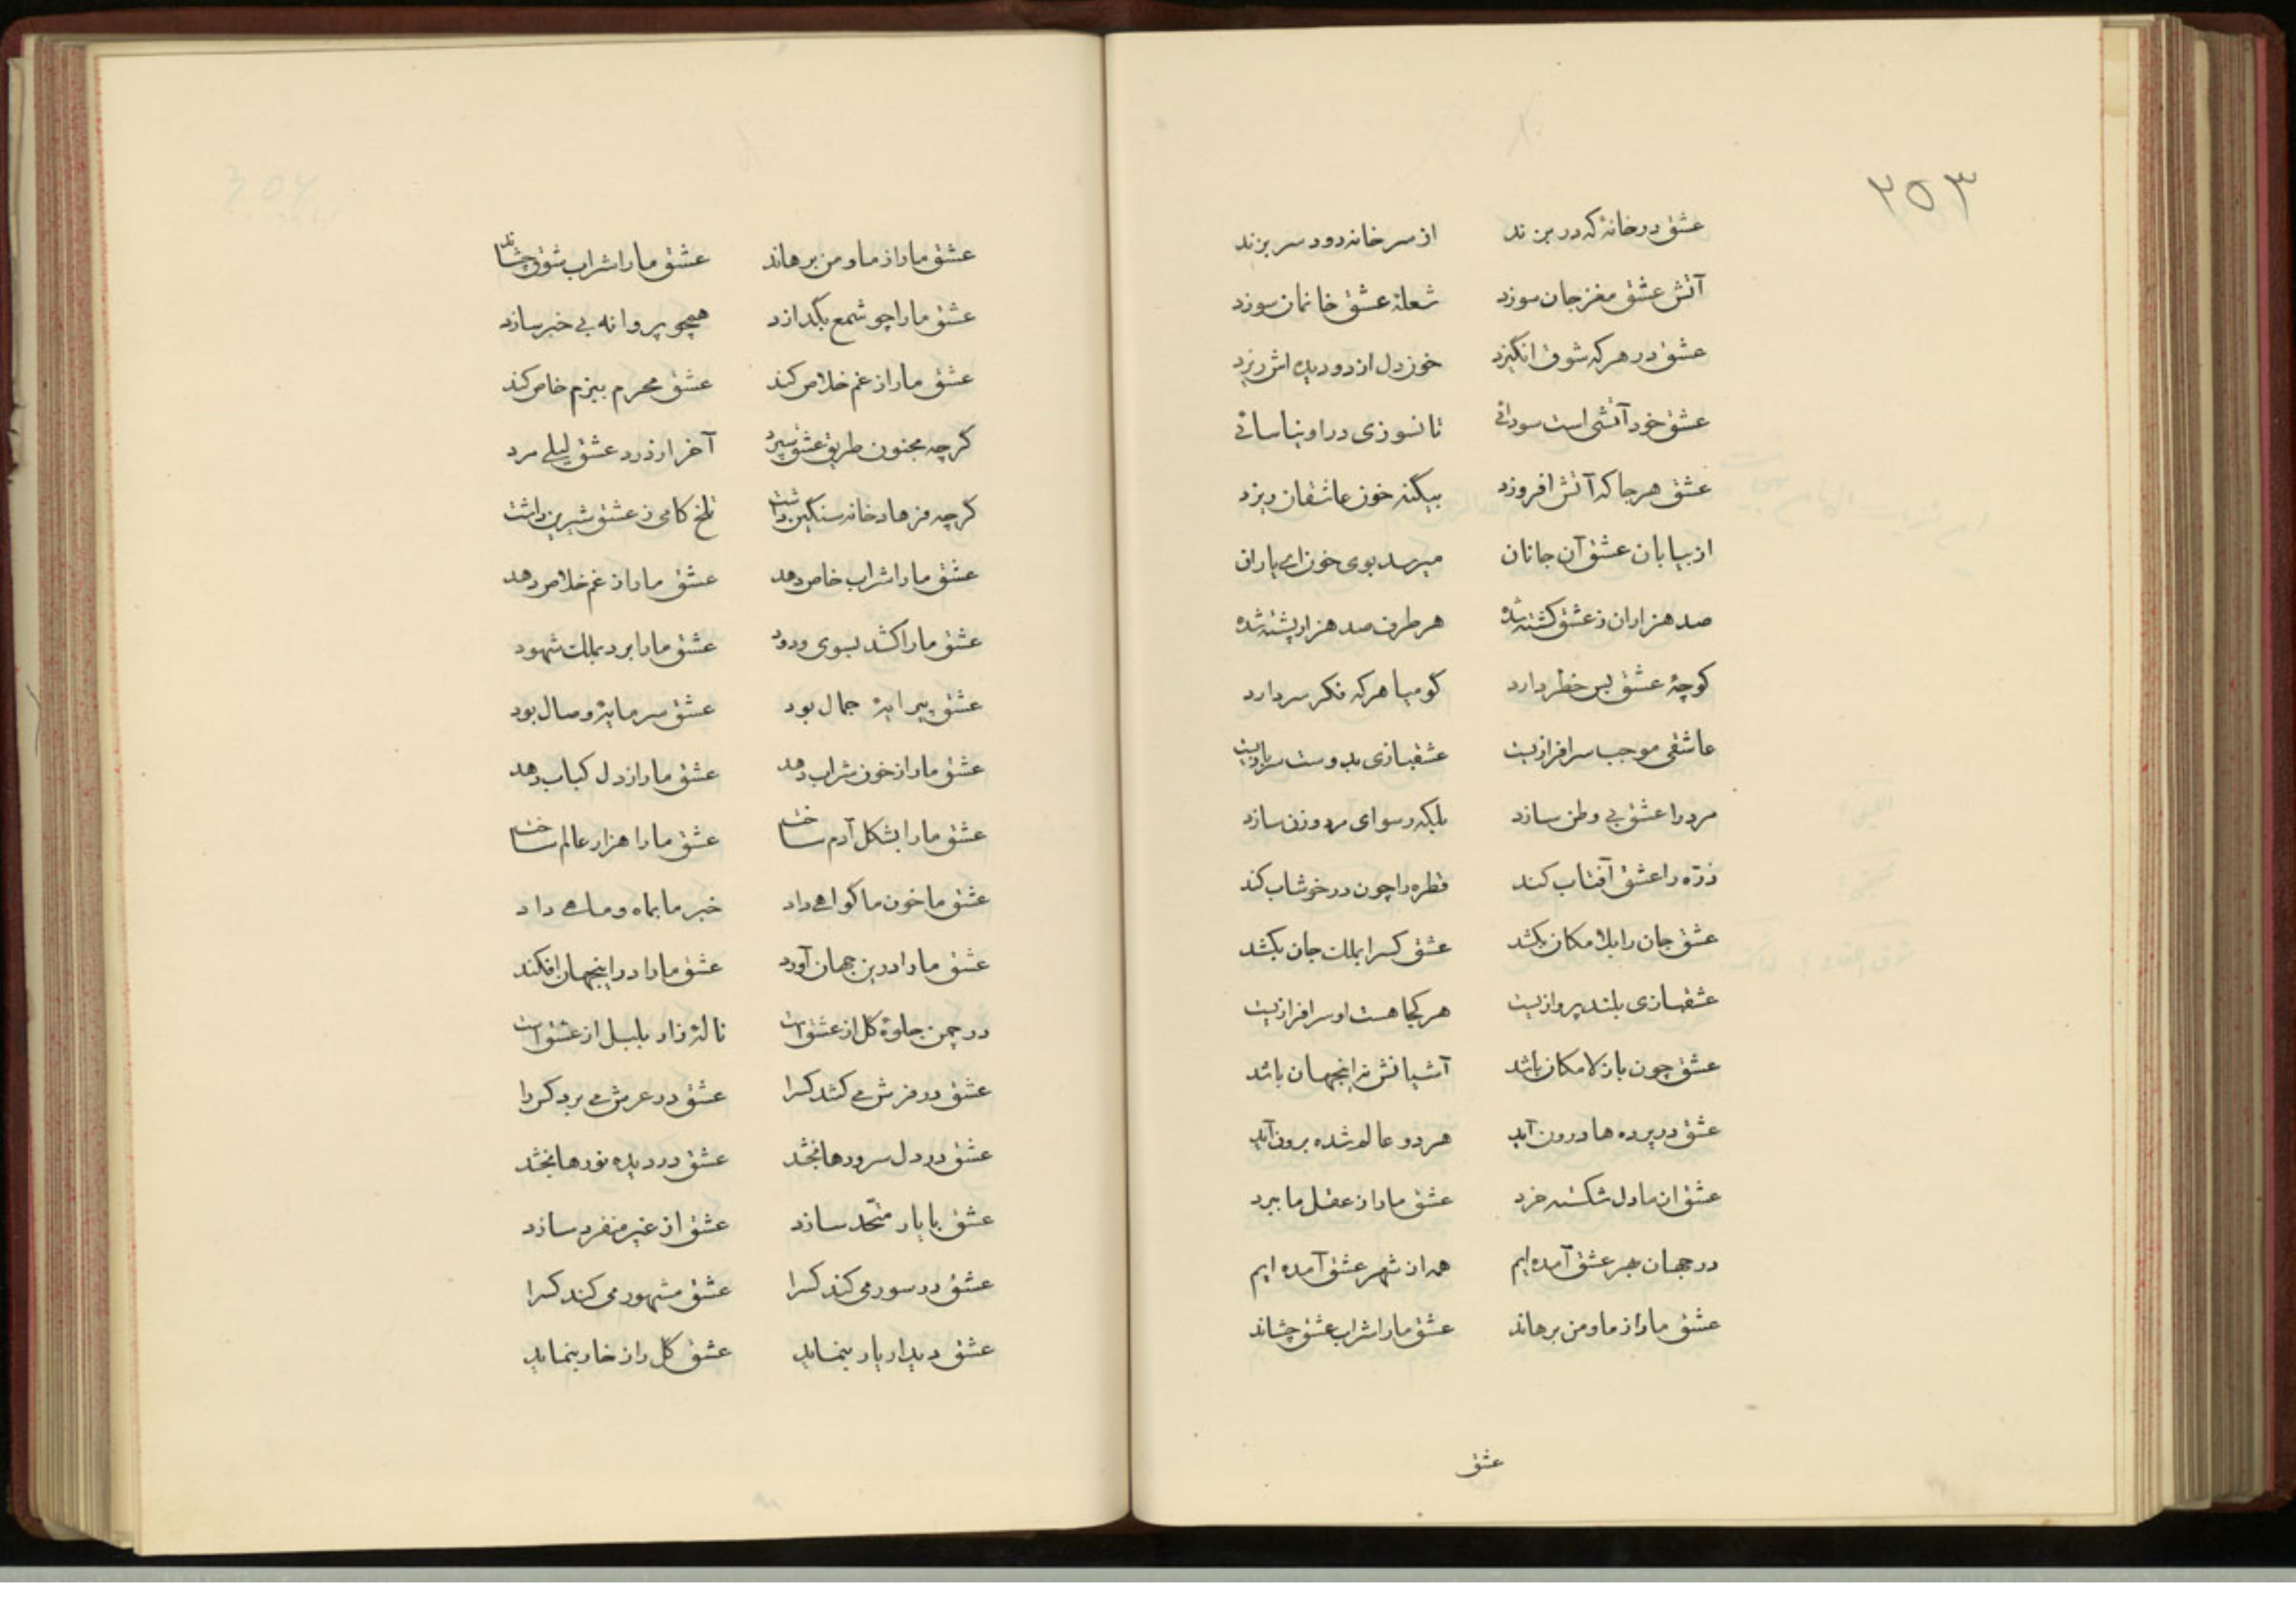 ۲۵۳
عشق در خانهٔ که در بزند از سر خانه دود سر بزند
آتش عشق مغز جان سوزد شعلهٔ عشق خانمان سوزد
عشق در هر که شوق انگیزد خون دل از دو دیده اش ریزد
عشق خود آتشی است سودائی تا نسوزی در او نیاسائی
عشق هر جا که آتش افروزد بیگنه خون عاشقان ریزد
از بیابان عشق آن جانان میرسد بوی خون ای یاران
صد هزاران ز عشق کشته شده هر طرف صد هزار پشته شده
کوچهٔ عشق بس خطر دارد کو میا هر که فکر سر دارد
عاشقی موجب سرافرازیست عشقبازی بدوست سربازیست
مرد را عشق بی وطن سازد بلکه رسوای مرد و زن سازد
ذرّه را عشق آفتاب کند قطره را چون در خوشاب کند
عشق جان را بلامکان بکشد عشق کسرا بملک جان بکشد
عشقبازی بلند پروازیست هر کجا هست او سرافرازیست
عشق چون باز لامکان باشد آشیانش نه اینجهان باشد
عشق در پرده ها درون آید هر دو عالم شده برون آید
عشق از ما دل شکسته خرد عشق ما را ز عقل ما ببرد
در جهان بهر عشق آمده ایم همه از شهر عشق آمده ایم
عشق ما را ز ما و من برهاند عشق ما را شراب عشق چشاند
عشق
عشق ما را از ما و من برهاند عشق ما را شراب شوق چشاند
عشق ما را چو شمع بگدازد همچو پروانه بی خبر سازد
عشق ما را ز غم خلاص کند عشق محرم ببزم خاص کند
کرچه مجنون طریق عشق سپرد آخر از درد عشق لیلی مرد
کرچه فرهاد خانه سنگین داشت تلخ کامی ز عشق شیرین داشت
عشق ما را شراب خاص دهد عشق ما را ز غم خلاص دهد
عشق ما را کشد بسوی ودود عشق ما را برد بملک شهود
عشق پیرایهٔ جمال بود عشق سرمایهٔ وصال بود
عشق ما را ز خون شراب دهد عشق ما را ز دل کباب دهد
عشق ما را بشکل آدم ساخت عشق ما را هزار عالم ساخت
عشق ما خون ما کواهی داد خبر ما بماه و ماهی داد
عشق ما را درین جهان آورد عشق ما را در اینجهان افکند
در چمن جلوهٔ کل از عشق است نالهٔ زار بلبل از عشق است
عشق در فرش می کشد کسرا عشق در عرش می برد کس را
عشق در دل سرورها بخشد عشق در دیده نورها بخشد
عشق با یار متّحد سازد عشق از غیر منفرد سازد
عشق در سور می کند کسرا عشق مشهور می کند کسرا
عشق دیدار یار بنماید عشق کل را ز خار بنماید